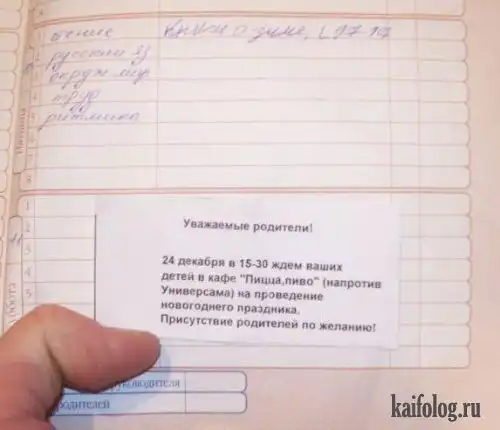 1 чтение Книги о зиме, с 17-19
2 русский яз
3 окруж мир
4 труд
5 ритмика
6
7
8
Пятница
1
2
3
4
5
Уважаемые родители!
24 декабря в 15-30 ждем ваших
детей в кафе "Пицца,пиво" (напротив
Универсама) на проведение
новогоднего праздника.
Присутствие родителей по желанию!
руководителя
родителей
kaifolog.ru